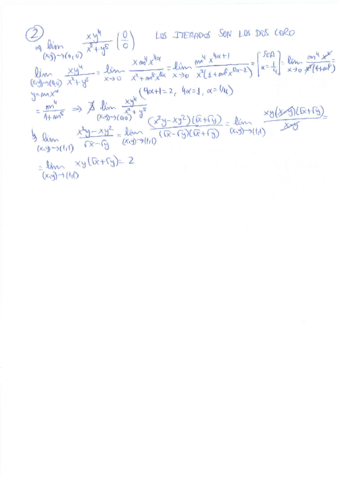 2
a) lim (x,y)→(0,0) xy⁴/(x²+y⁸) (0/0) LOS ITERADOS SON LOS DOS CERO
lim (x,y)→(0,0) y=mx^α xy⁴/(x²+y⁸) = lim x→0 x m⁴ x^{4α}/(x²+m⁸x^{8α}) = lim x→0 m⁴ x^{4α+1}/(x²(1+m⁸x^{8α-2})) = [SEA α=1/4] = lim x→0 m⁴x²/(x²(1+m⁸))
(4α+1=2, 4α=1, α=1/4)
= m⁴/(1+m⁸) ⇒ ∄ lim (x,y)→(0,0) xy⁴/(x²+y⁸)
b) lim (x,y)→(1,1) (x²y-xy²)/(√x-√y) = lim (x,y)→(1,1) (x²y-xy²)(√x+√y)/((√x-√y)(√x+√y)) = lim (x,y)→(1,1) xy(x-y)(√x+√y)/(x-y) =
= lim (x,y)→(1,1) xy(√x+√y) = 2